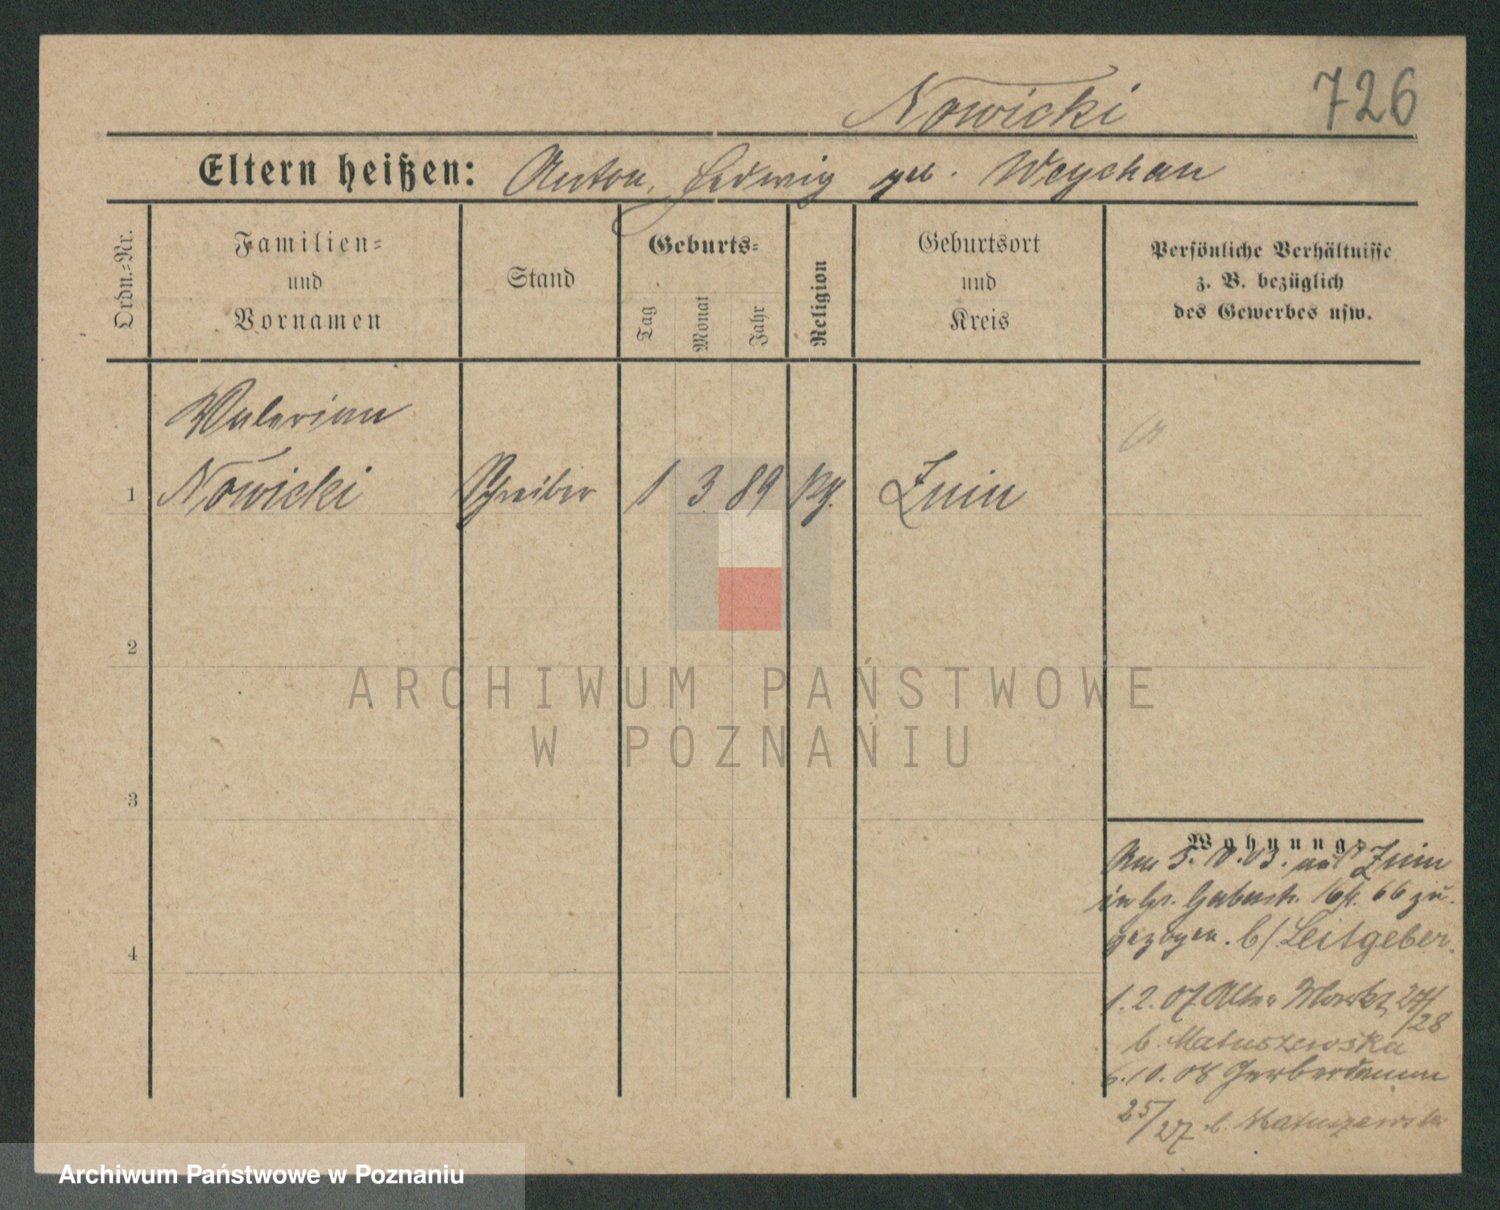 Nowicki
726
Eltern heißen: Anton, Hedwig geb. Weychan
Ordn.-Nr.
Familien-
und
Vornamen
Stand
Geburts-
Tag
Monat
Jahr
Religion
Geburtsort
und
Kreis
Persönliche Verhältnisse
z. B. bezüglich
des Gewerbes usw.
Valerian
1 Nowicki Schreiber 1 3 89 kth. Znin
2
3
4
Wohnung:
Am 3. 10. 03. aus Znin
in Gr. Gerberstr. 66 zu-
gezogen. b/ Leitgeber.
1. 2. 07 Alter Markt 27/28
b. Matuszewska
6. 10. 08 Gerberdamm
25/27 b. Matuszewska
ARCHIWUM PAŃSTWOWE
W POZNANIU
Archiwum Państwowe w Poznaniu